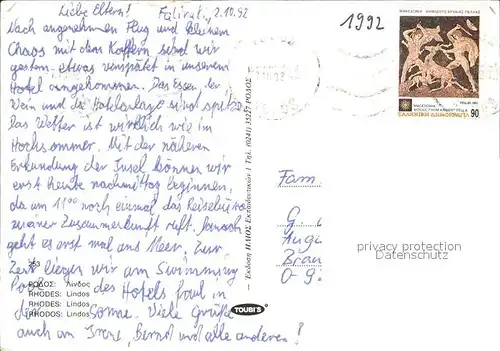 Liebe Eltern! Faliraki, 2.10.92
Nach angenehmen Flug und kleinem
Chaos mit dem Koffern sind wir
gestern etwas verspätet in unserem
Hotel angekommen. Das Essen, der
Wein und die Hotelanlage sind spitze
das Wetter ist wirklich wie im
Hochsommer. Mit der näheren
Erkundung der Insel können wir
erst heute nachmittag beginnen,
da um 11⁰⁰ noch einmal das Reisebüro
zu einer Zusammenkunft ruft. Danach
geht es erst mal ans Meer. Zur
Zeit liegen wir am Swimming
Pool des Hotels faul in
der Sonne. Viele Grüße
auch an Irene, Bernd und alle anderen!
ΡΟΔΟΣ: Λίνδος
RHODES: Lindos
RHODES: Lindos
RHODOS: Lindos
Έκδοση ΗΛΙΟΣ Εκπαιδευτικών 1 Τηλ. (0241) 35227 ΡΟΔΟΣ
TOUBI'S
1992
ΕΛΛΗΝΙΚΗ ΔΗΜΟΚΡΑΤΙΑ 90
Fam
G.
Auge
Brau
O-9.
privacy protection
Datenschutz